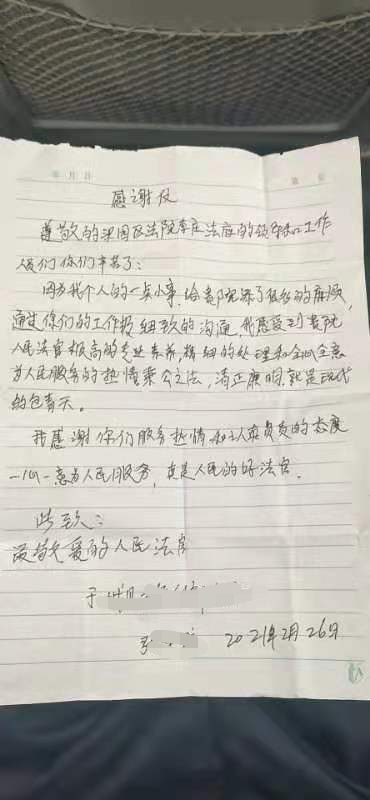 年 月 日
感谢信
尊敬的梁园区法院李庄法庭的领导和工作
人员们你们辛苦了:
因为我个人的一点小事,给贵院添了很多的麻烦,
通过你们的工作 细致的沟通,我感受到贵院
人民法官极高的专业素养,精细的处理和全心全意
为人民服务的热情秉公立法,清正廉明就是现代
的包青天。
我感谢你们服务热情和认真负责的态度
一心一意为人民服务,真是人民的好法官。
此致:
最敬爱的人民法官
于
2021年2月26日